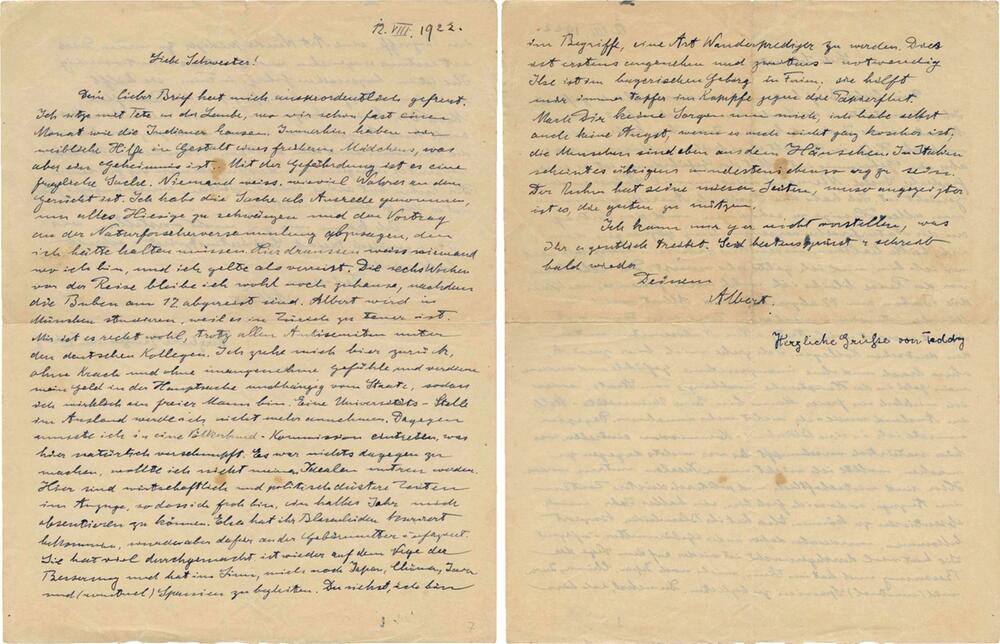 12. VIII. 1922.
Liebe Schwester!
Dein lieber Brief hat mich ausserordentlich gefreut.
Ich sitze mit Tete in der Laube, wo wir schon fast einen
Monat wie die Indianer hausen. Immerhin haben wir
weibliche Hilfe in Gestalt eines früheren Mädchens, was
aber ein Geheimnis ist. Mit der Gefährdung ist es eine
fragliche Sache. Niemand weiss, wieviel Wahres an dem
Gerücht ist. Ich habe die Sache als Ausrede genommen,
um alles Hiesige zu schwänzen und den Vortrag
an der Naturforscherversammlung abzusagen, den
ich hätte halten müssen. Hier draussen weiss niemand
wo ich bin, und ich gelte als verreist. Die sechs Wochen
vor der Reise bleibe ich wohl noch zuhause, nachdem
die Buben am 17. abgereist sind. Albert wird in
München studieren, weil es in Zürich zu teuer ist.
Mir ist es recht wohl, trotz allen Antisemiten unter
den deutschen Kollegen. Ich ziehe mich hier zurück,
ohne Krach und ohne unangenehme Gefühle und verdiene
mein Geld in der Hauptsache unabhängig vom Staate, sodass
ich wirklich ein freier Mann bin. Eine Universitäts-Stelle
im Ausland werde ich nicht mehr annehmen. Dagegen
musste ich in eine Völkerbund-Kommission eintreten, was
hier natürlich verschnupft. Es war nichts dagegen zu
machen, wollte ich nicht meinen Idealen untreu werden.
Hier sind wirtschaftlich und politisch düstere Zeiten
im Anzuge, sodass ich froh bin, ein halbes Jahr mich
absentieren zu können. Elsa hat ihr Blasenleiden kuriert
bekommen, wurde aber dafür an der Gebärmutter
Sie hat viel durchgemacht ist wieder auf dem Wege der
Besserung und hat im Sinn, mich nach Japan, China, Java
und (eventuel) Spanien zu begleiten. Du siehst, ich bin
im Begriffe, eine Art Wanderprediger zu werden. Dies
ist erstens angenehm und zweitens – notwendig
Ilse ist im bayerischen Gebirg in Ferien, sie hilft
mir immer tapfer im Kampfe gegen die Papierflut.
Mach Dir keine Sorgen um mich, ich habe selbst
auch keine Angst, wenn es auch nicht ganz koscher ist,
die Menschen sind eben aus dem Häuschen. In Italien
scheint es übrigens mindestens ebenso arg zu sein.
Der Ruhm hat seine miesen Seiten, umso angezeigter
ist es, die guten zu nützen.
Ich kann mir gar nicht vorstellen, was
Ihr eigentlich treibt. Seid bestens gegrüsst & schreib
bald wieder
Deinem
Albert.
Herzliche Grüße von Teddy